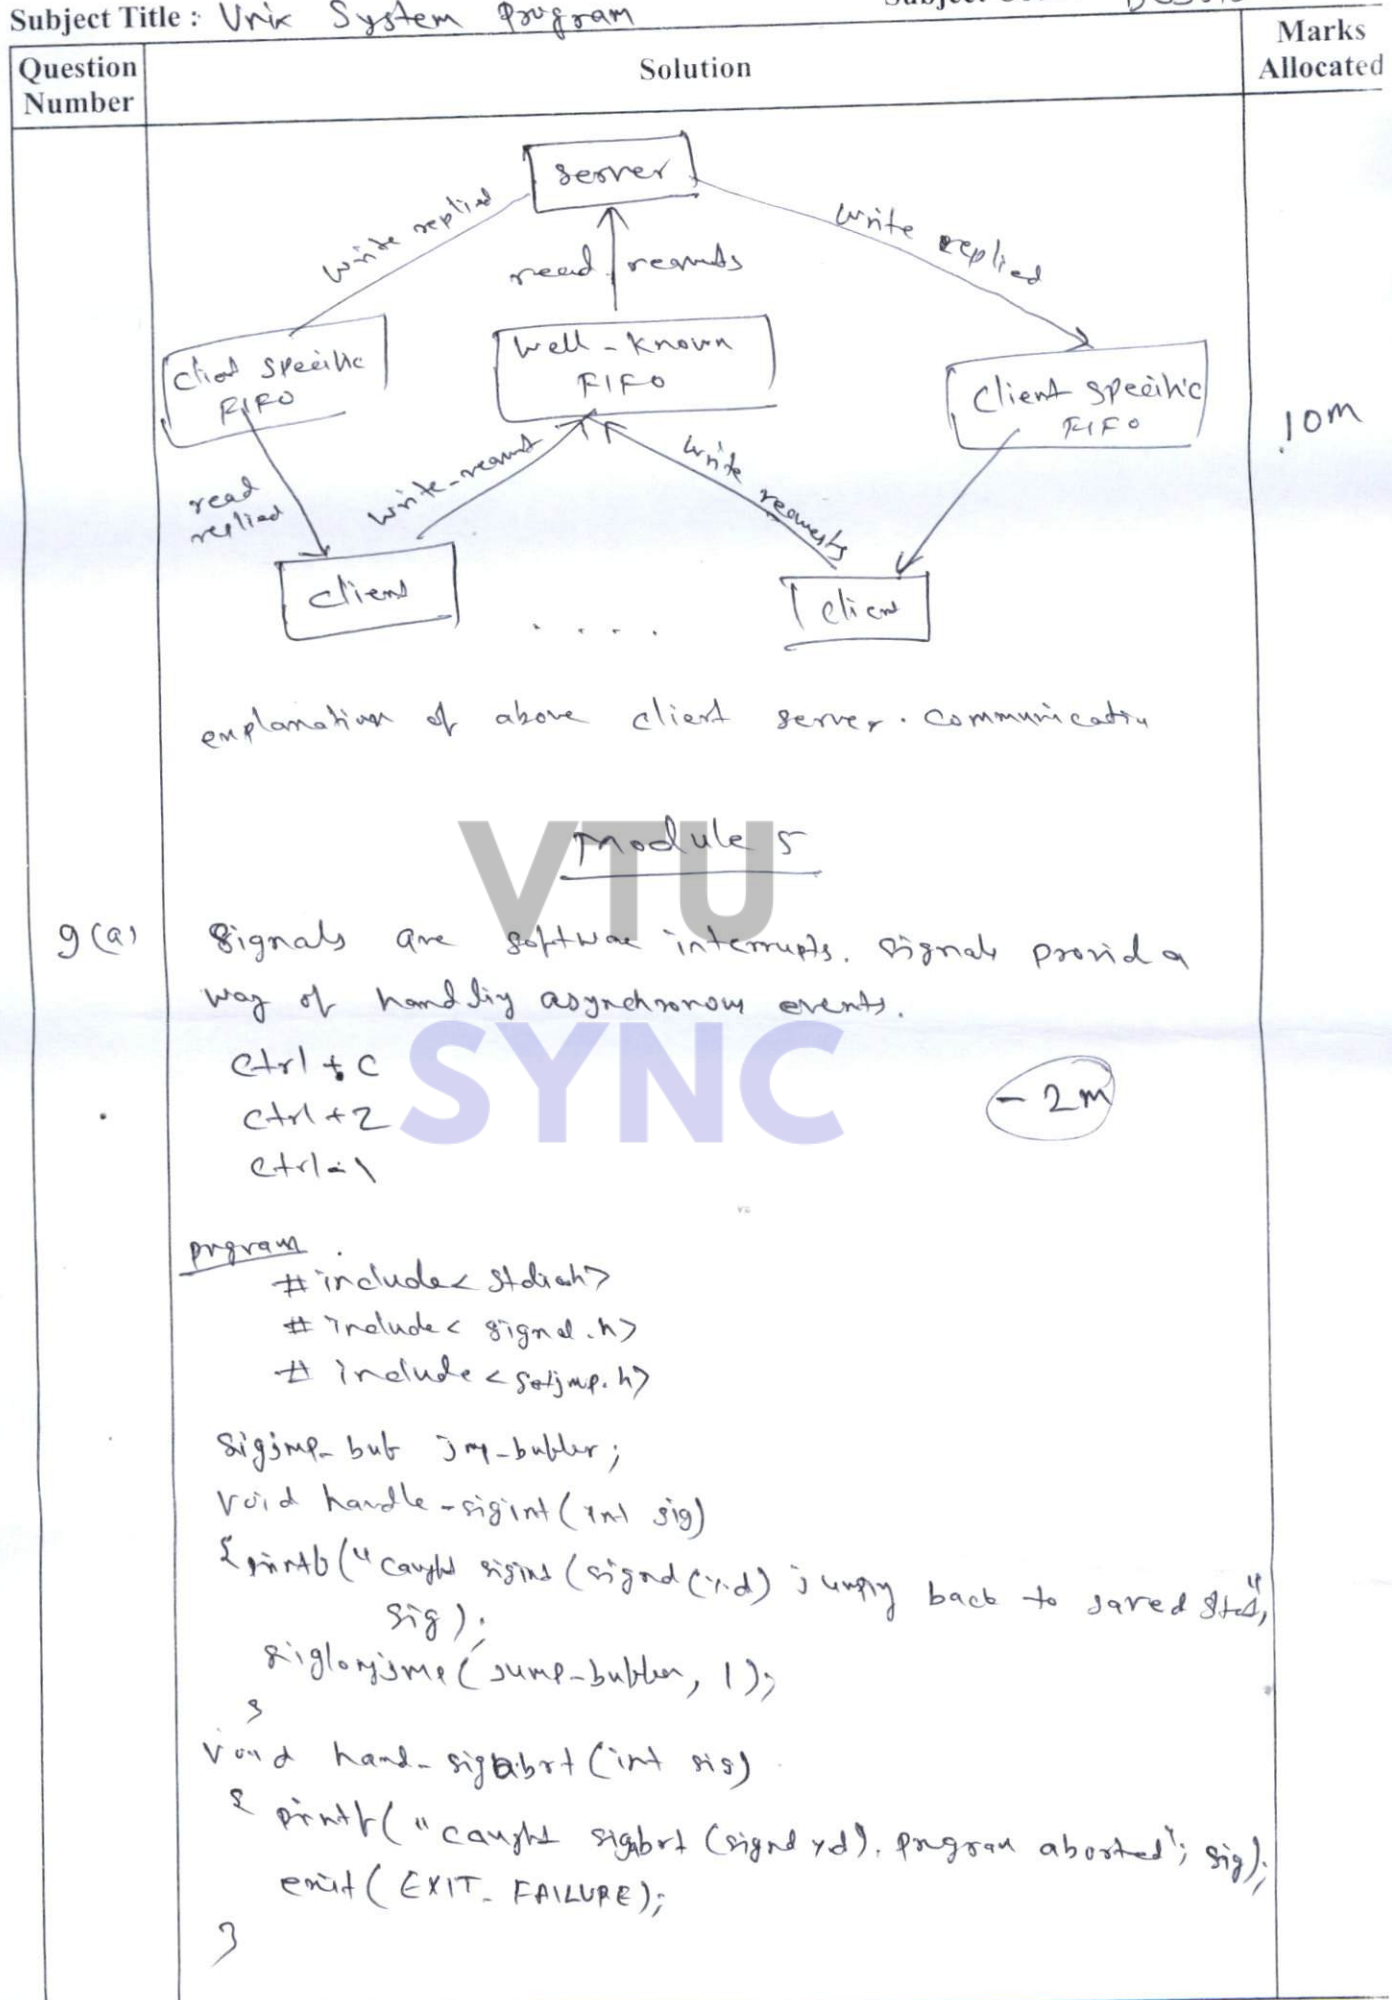 Subject Title : Unix System Program
Question Number
Solution
Marks Allocated
server
write replied
read requests
write replied
Client specific FIFO
Well-known FIFO
Client specific FIFO
10m
read replied
write-request
write requests
client
. . . .
client
explanation of above client server. communication
VTU
SYNC
Module 5
9(a)
Signals are software interrupts. signals provid a
way of handling asynchronous events.
Ctrl + C
Ctrl + Z
Ctrl - \
- 2m
prgram
#include< stdio.h>
# include< signal.h>
# include <setjmp.h>
sigjmp_buf jmp_buffer;
void handle-sigint(int sig)
{printf("caught sigint (signal (%d) jumping back to saved
sig);
siglongjmp(jump-buffer, 1);
}
void hand-sigabrt(int sig)
{ printf("caught sigabrt (signal %d). program aborted"; sig);
exit(EXIT_FAILURE);
}